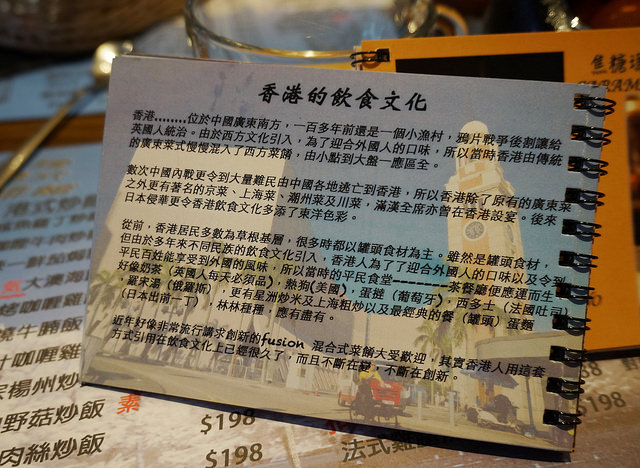 香港的飲食文化
香港........位於中國廣東南方，一百多年前還是一個小漁村，鴉片戰爭後割讓給
英國人統治。由於西方文化引入，為了迎合外國人的口味，所以當時香港由傳統
的廣東菜式慢慢混入了西方菜餚，由小點到大盤一應區全。
數次中國內戰更令到大量難民由中國各地逃亡到香港，所以香港除了原有的廣東菜
之外更有著名的京菜、上海菜、潮州菜及川菜，滿漢全席亦曾在香港設宴。後來
日本侵華更令香港飲食文化多添了東洋色彩。
從前，香港居民多數為草根基層，很多時都以罐頭食材為主。雖然是罐頭食材，
但由於多年來不同民族的飲食文化引入，香港人為了了迎合外國人的口味以及令到
平民百姓能享受到外國的風味，所以當時的平民食堂————茶餐廳便應運而生。
好像奶茶（英國人每天必須品），熱狗(美國)，蛋撻（葡萄牙），西多士（法國吐司）
，羅宋湯（俄羅斯），更有星洲炒米及上海粗炒以及最經典的餐（罐頭）蛋麵
（日本出前一丁），林林種種，應有盡有。
近年好像非常流行講求創新的fusion 混合式菜餚大受歡迎，其實香港人用這套
方式引用在飲食文化上已經很久了，而且不斷在變，不斷在創新。
焦糖
大澳
咖哩雞
牛腩飯
咖哩雞
楊州炒
野菇炒飯 素
肉絲炒飯
$198
$198
法式
$198